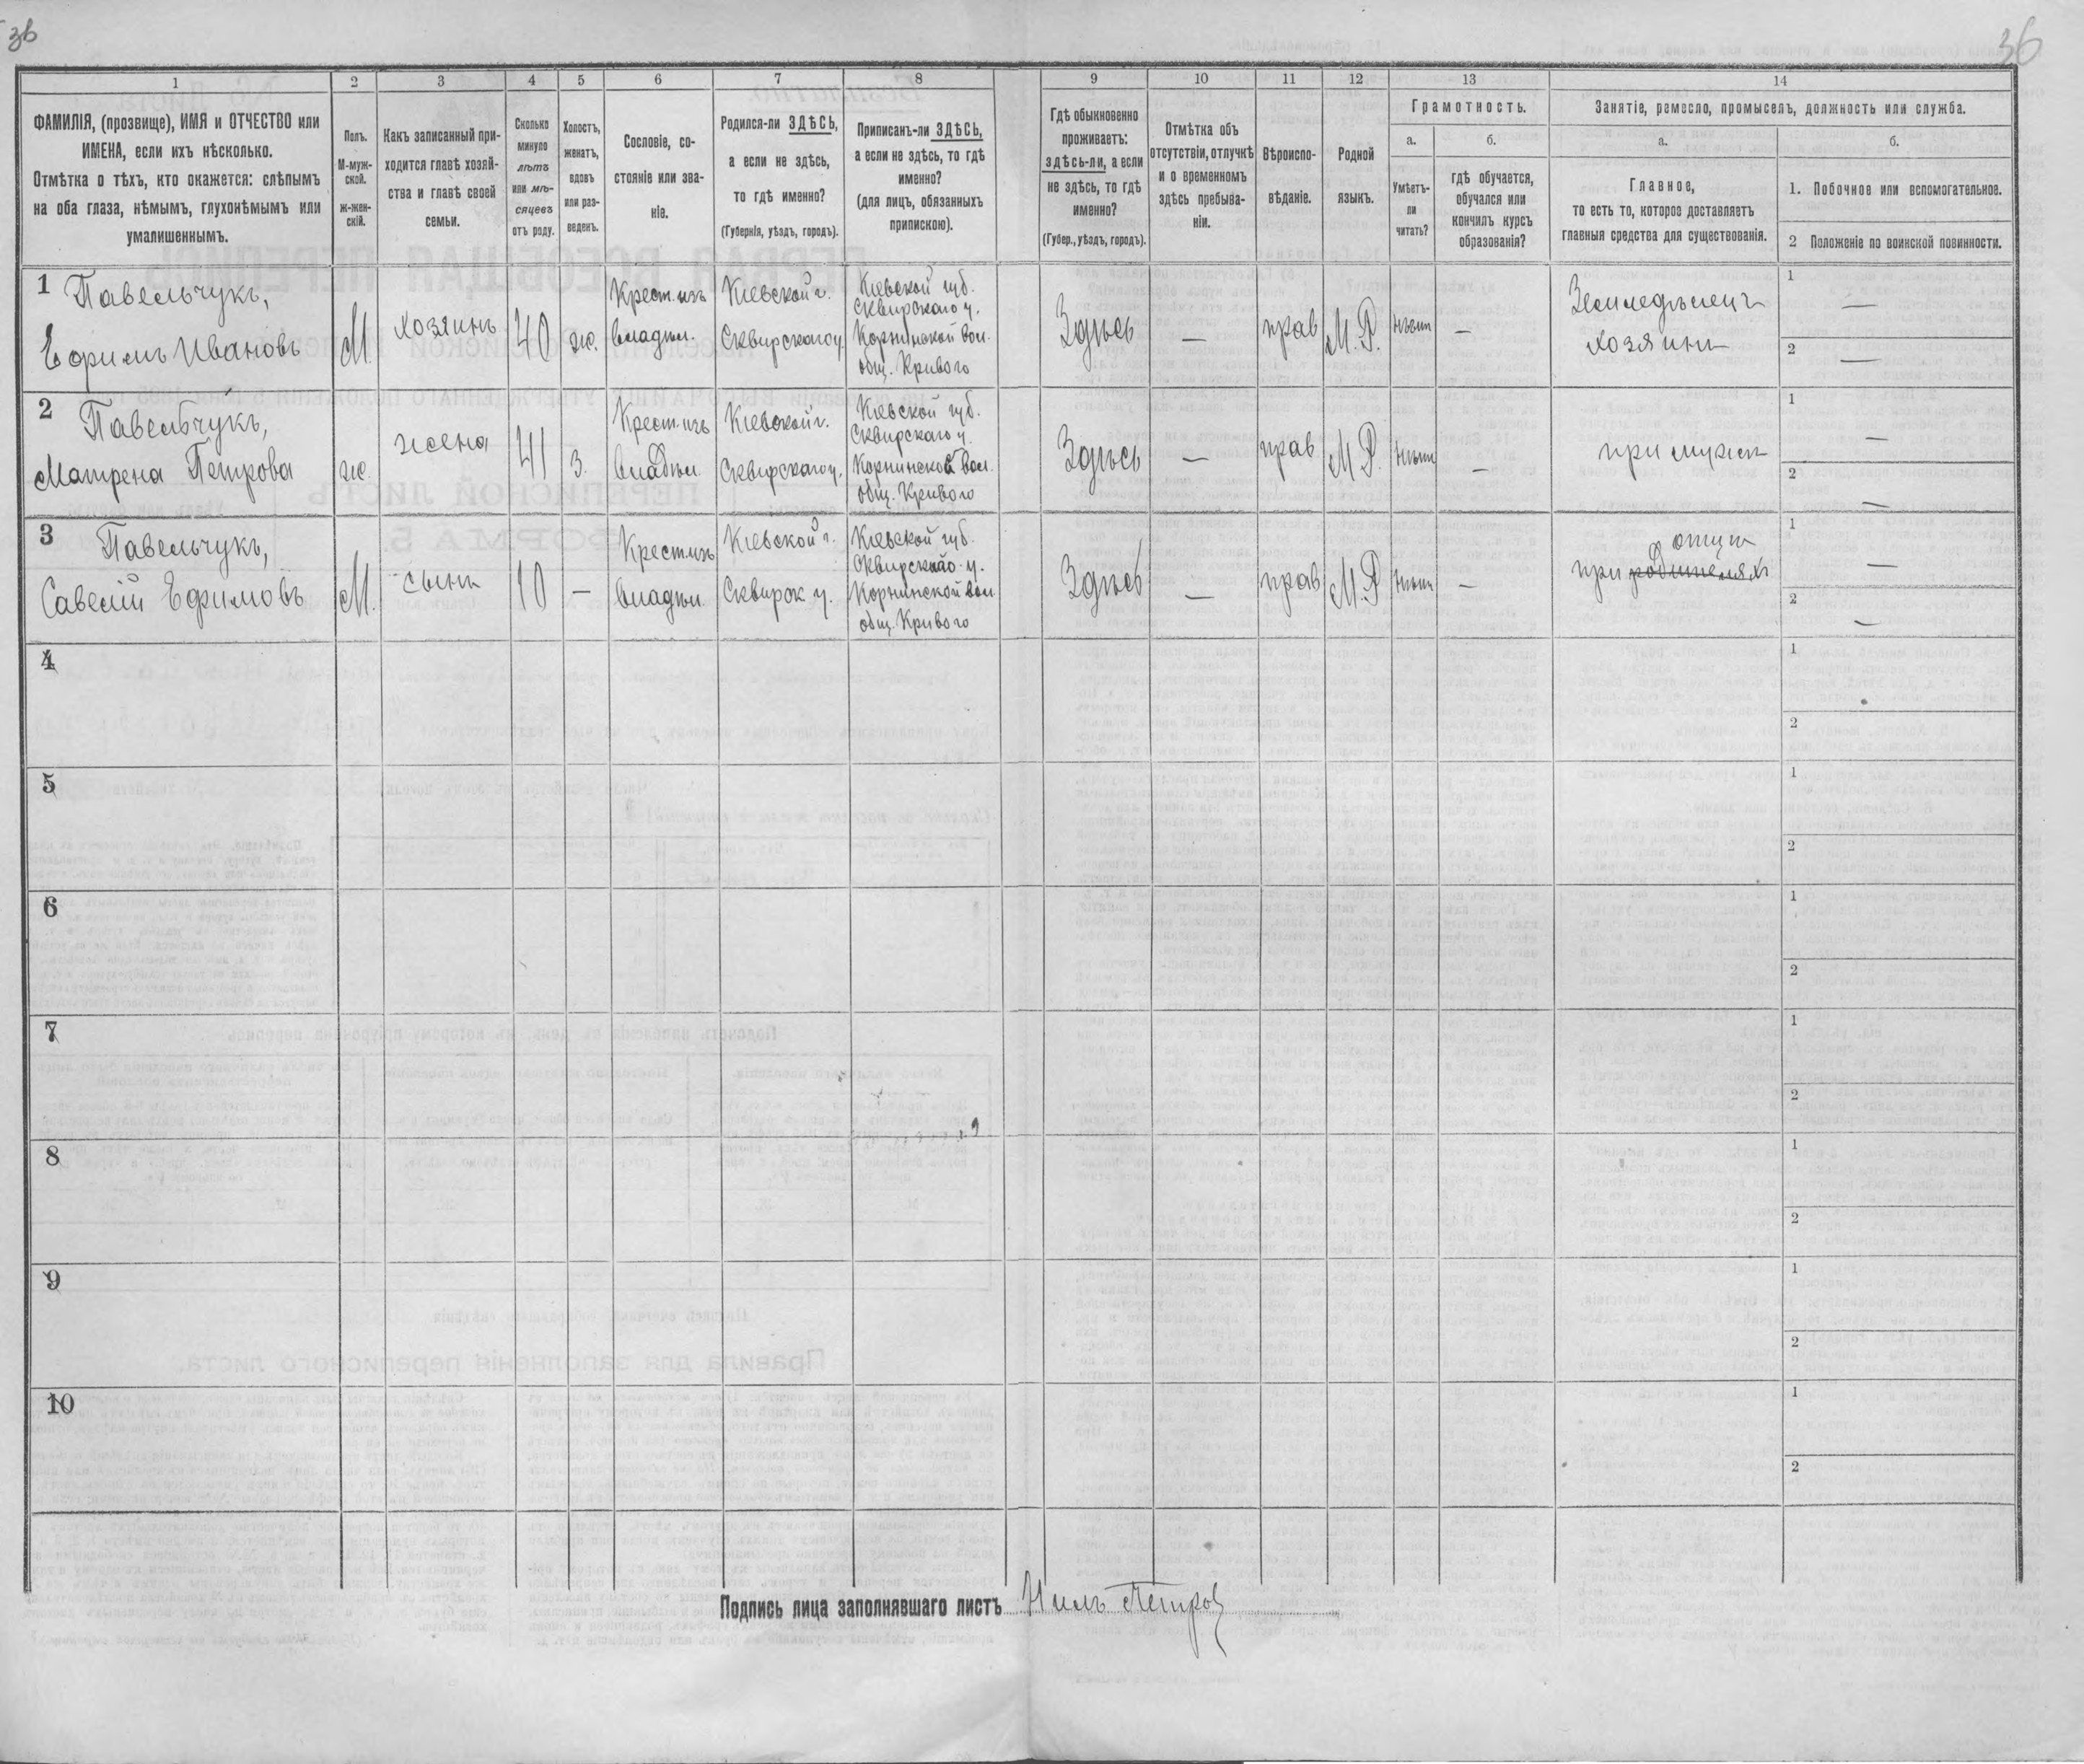 36
36
1
2
3
4
5
6
7
8
9
10
11
12
13
14
ФАМИЛІЯ, (прозвище), ИМЯ и ОТЧЕСТВО или
ИМЕНА, если ихъ нѣсколько.
Отмѣтка о тѣхъ, кто окажется: слѣпымъ
на оба глаза, нѣмымъ, глухонѣмымъ или
умалишеннымъ.
Полъ.
М-муж-
ской.
ж-жен-
скій.
Какъ записанный при-
ходится главѣ хозяй-
ства и главѣ своей
семьи.
Сколько
минуло
лѣтъ
или мѣ-
сяцевъ
отъ роду.
Холостъ,
женатъ,
вдовъ
или раз-
веденъ.
Сословіе, со-
стояніе или зва-
ніе.
Родился-ли ЗДѢСЬ,
а если не здѣсь,
то гдѣ именно?
(Губернія, уѣздъ, городъ).
Приписанъ-ли ЗДѢСЬ,
а если не здѣсь, то гдѣ
именно?
(для лицъ, обязанныхъ
припискою).
Гдѣ обыкновенно
проживаетъ:
здѣсь-ли, а если
не здѣсь, то гдѣ
именно?
(Губер., уѣздъ, городъ).
Отмѣтка объ
отсутствіи, отлучкѣ
и о временномъ
здѣсь пребыва-
ніи.
Вѣроиспо-
вѣданіе.
Родной
языкъ.
Грамотность.
а.
Умѣетъ-
ли
читать?
б.
гдѣ обучается,
обучался или
кончилъ курсъ
образованія?
Занятіе, ремесло, промыселъ, должность или служба.
а.
Главное,
то есть то, которое доставляетъ
главныя средства для существованія.
б.
1. Побочное или вспомогательное.
2 Положеніе по воинской повинности.
1
Павельчукъ,
Ефримъ Ивановъ
М.
хозяинъ
40
ж.
Крест. изъ
владѣл.
Кіевской г.
Сквирского у.
Кіевской губ.
Сквирского у.
Корнинской вол.
общ. Кривого
Здѣсь
—
прав
М.Р.
нѣтъ
—
Земледѣлецъ
хозяинъ
1 —
2 —
2
Павельчукъ,
Матрена Петрова
ж.
жена
41
З.
Крест. изъ
владѣл
Кіевской г.
Сквирского у.
Кіевской губ.
Сквирскаго у.
Корнинской вол.
общ. Кривого
Здѣсь
—
прав
М.Р.
нѣтъ
—
при мужѣ
1 —
2 —
3
Павельчукъ,
Савелій Ефимовъ
М.
сынъ
10
—
Крест. изъ
владѣл.
Кіевской г.
Сквирск у.
Кіевской губ.
Сквирскаго у.
Корнинской вол
общ. Кривого
Здѣсь
—
прав
М.Р
нѣтъ
—
отцѣ
при родителяхъ
1 —
2 —
4
1
2
5
1
2
6
1
2
7
1
2
8
1
2
9
1
2
10
1
2
Подпись лица заполнявшаго листъ Нилъ Петров